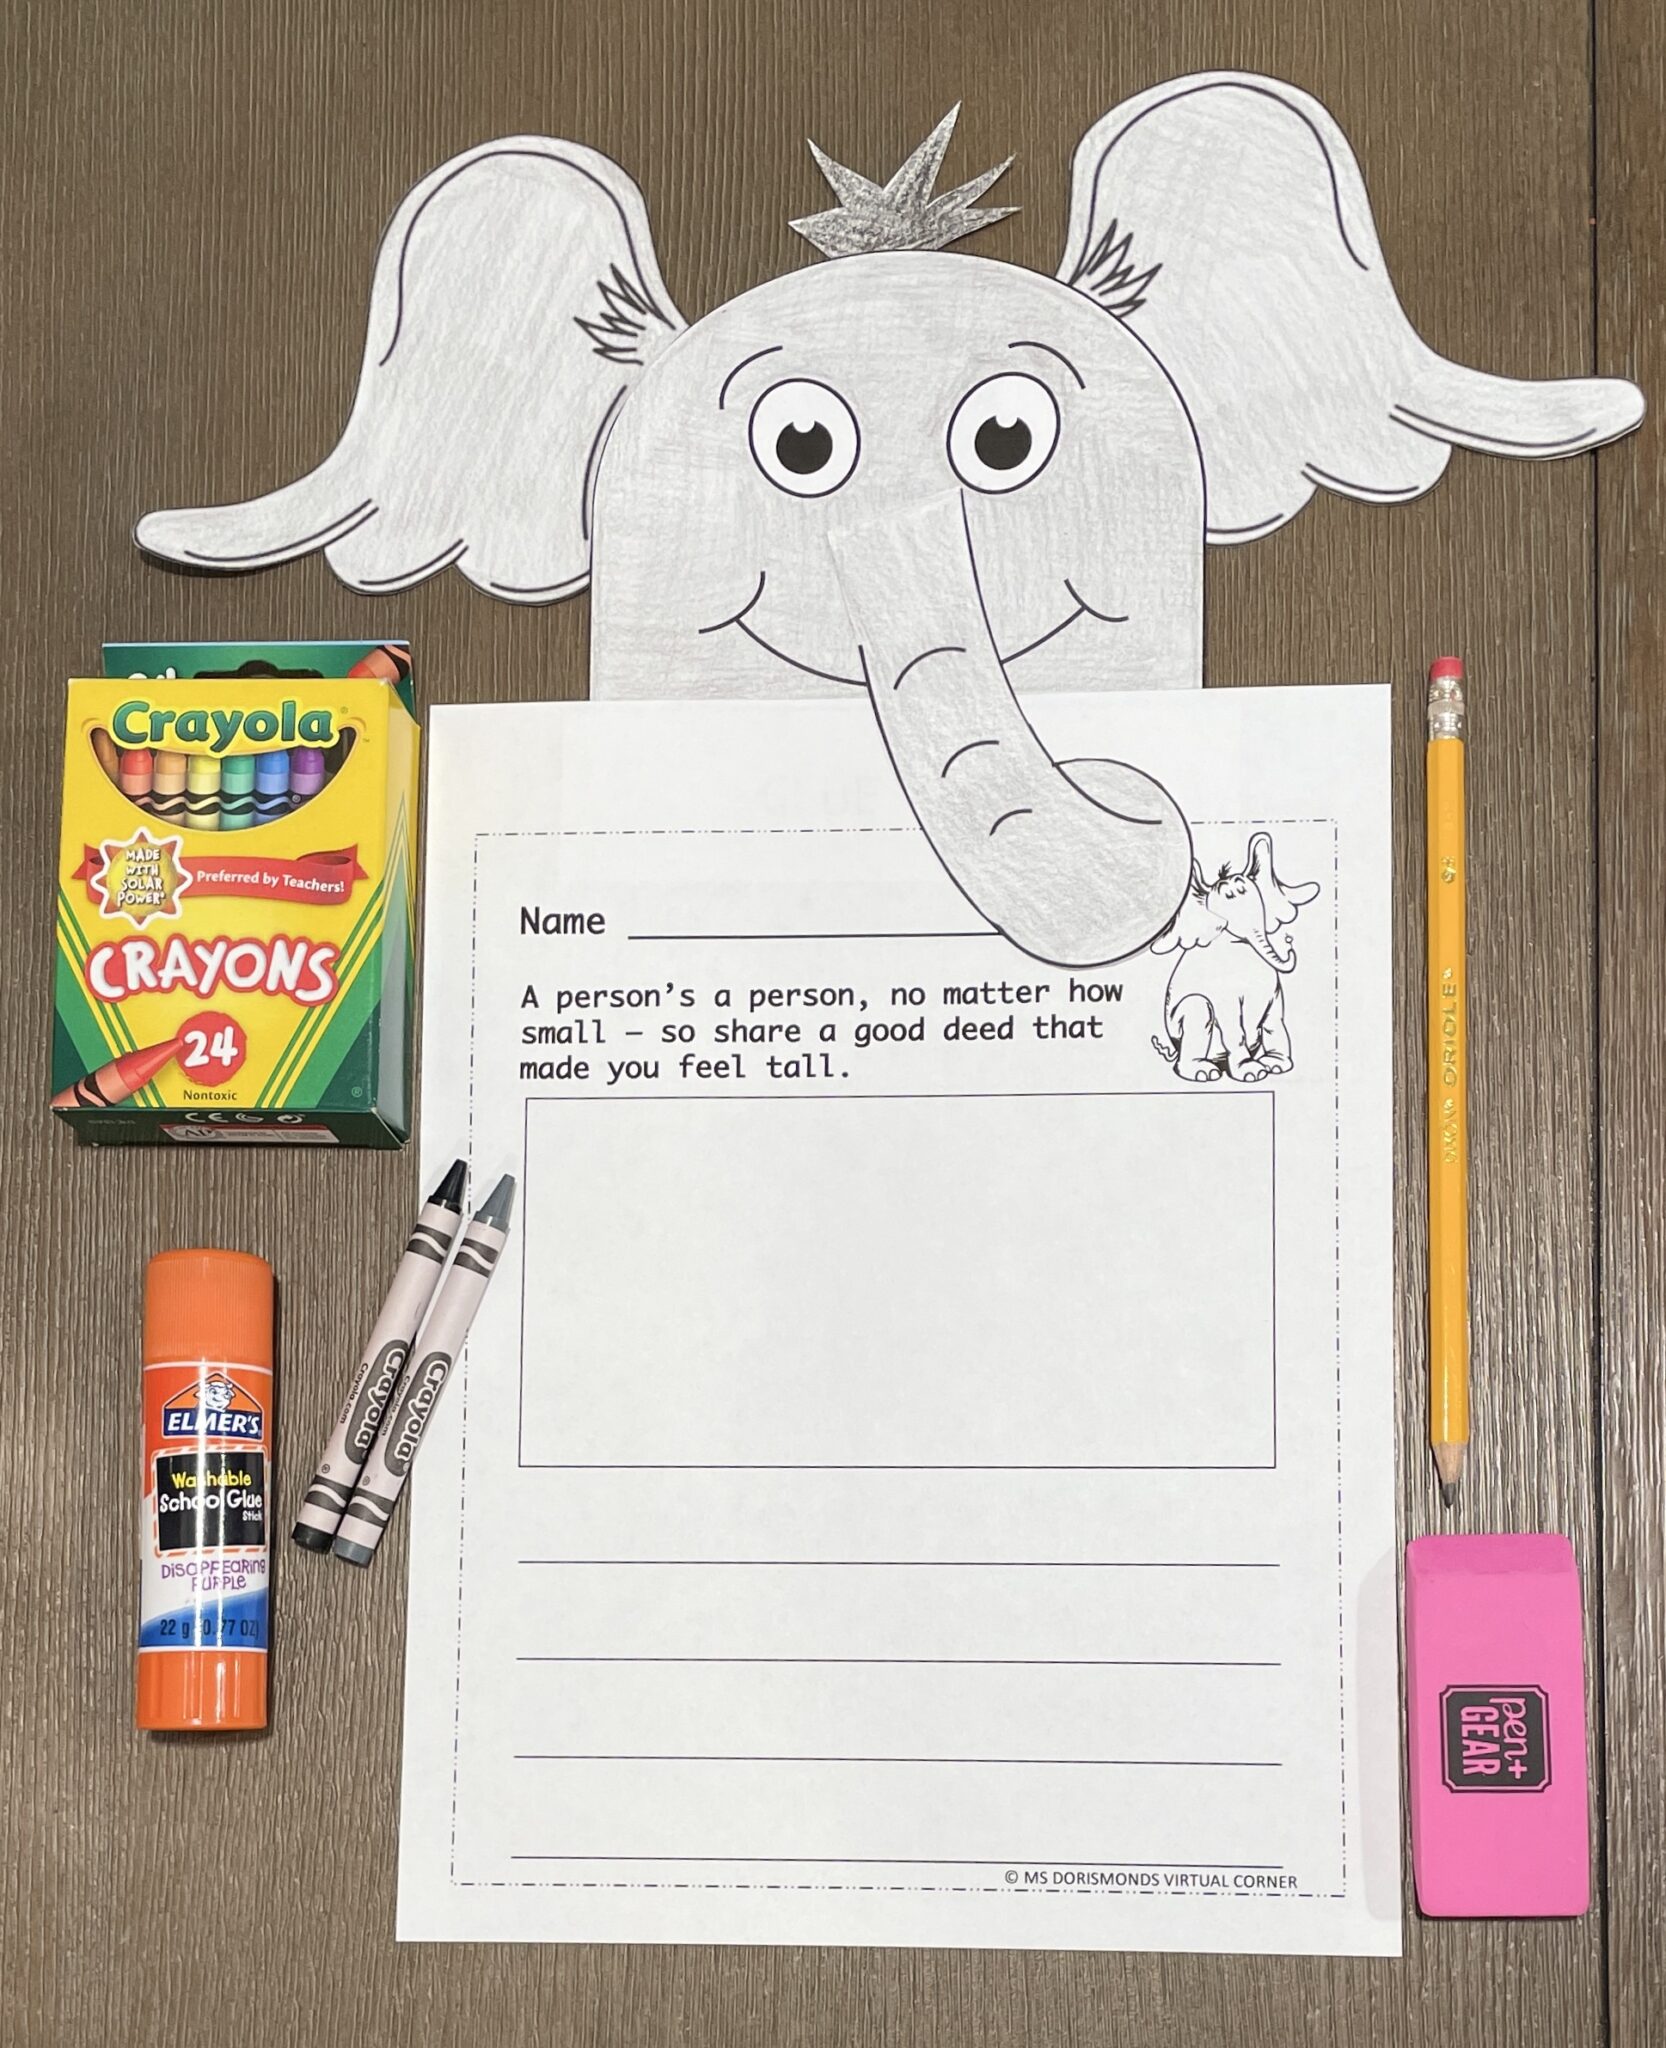 Crayola
MADE
WITH
SOLAR
POWER
Preferred by Teachers!
CRAYONS
24
Nontoxic
CE
Name
A person's a person, no matter how
small – so share a good deed that
made you feel tall.
© MS DORISMONDS VIRTUAL CORNER
Crayola
Crayola.com
Crayola
Crayola.com
ELMER'S
Washable
School Glue
Stick
DISAPPEARING
PURPLE
22 g (0.77 OZ)
SHOW ORIOLE
pen+
GEAR